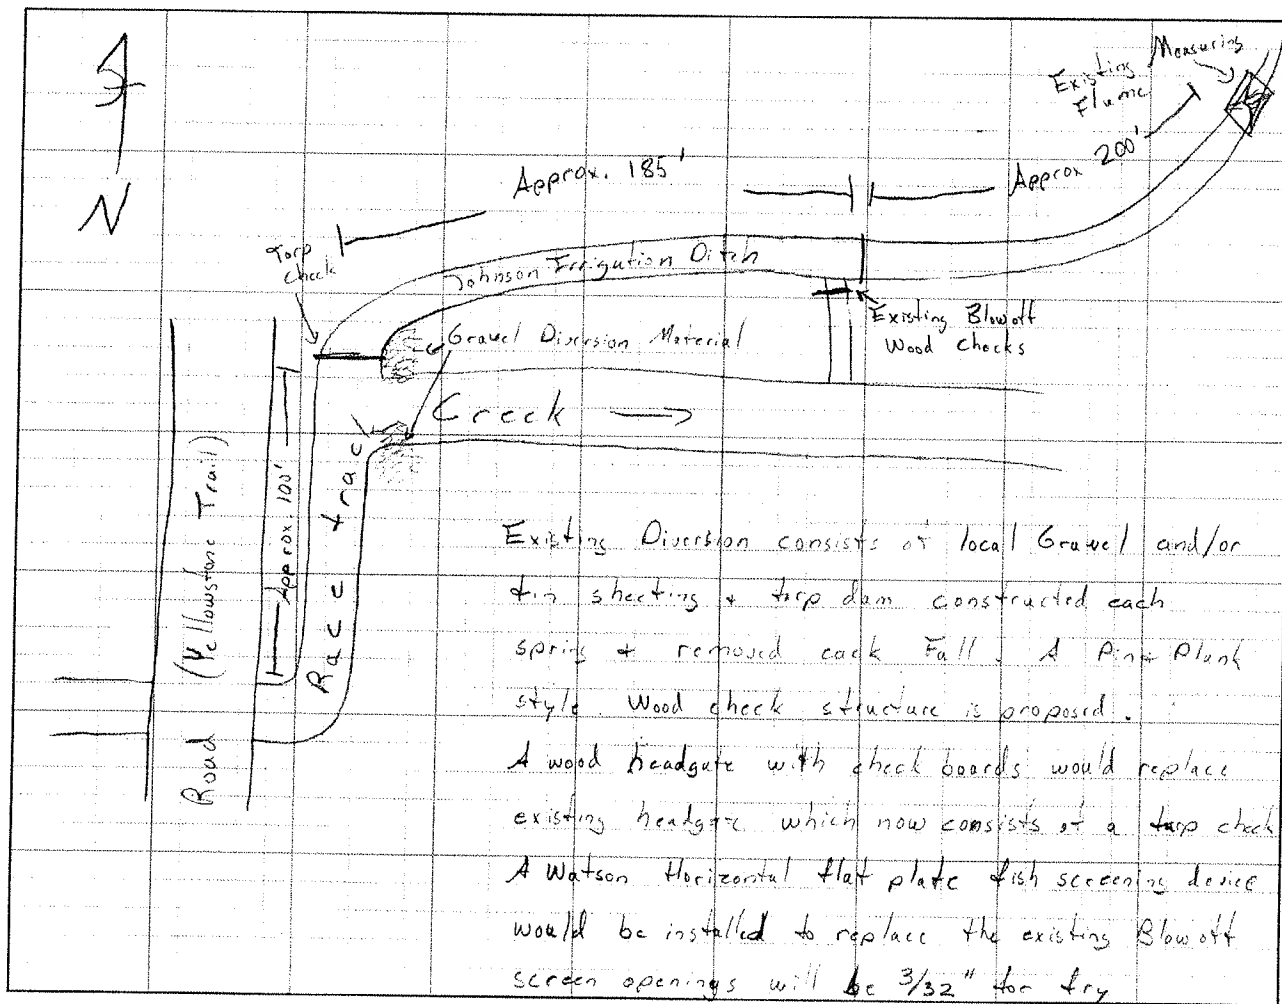 N
Existing Measuring
Flume
Approx. 185'
Approx 200'
Tarp
Check
Johnson Irrigation Ditch
Existing Blowoff
Wood Checks
Gravel Diversion Material
Creek
Race track
Approx. 100'
Road (Yellowstone Trail)
Existing Diversion consists of local Gravel and/or
tin sheeting + tarp dam constructed each
spring + removed each Fall. A Pin + Plank
style Wood check structure is proposed.
A wood headgate with check boards would replace
existing headgate which now consists of a tarp check
A Watson Horizontal flat plate fish screening device
would be installed to replace the existing Blowoff
screen openings will be 3/32" for fry